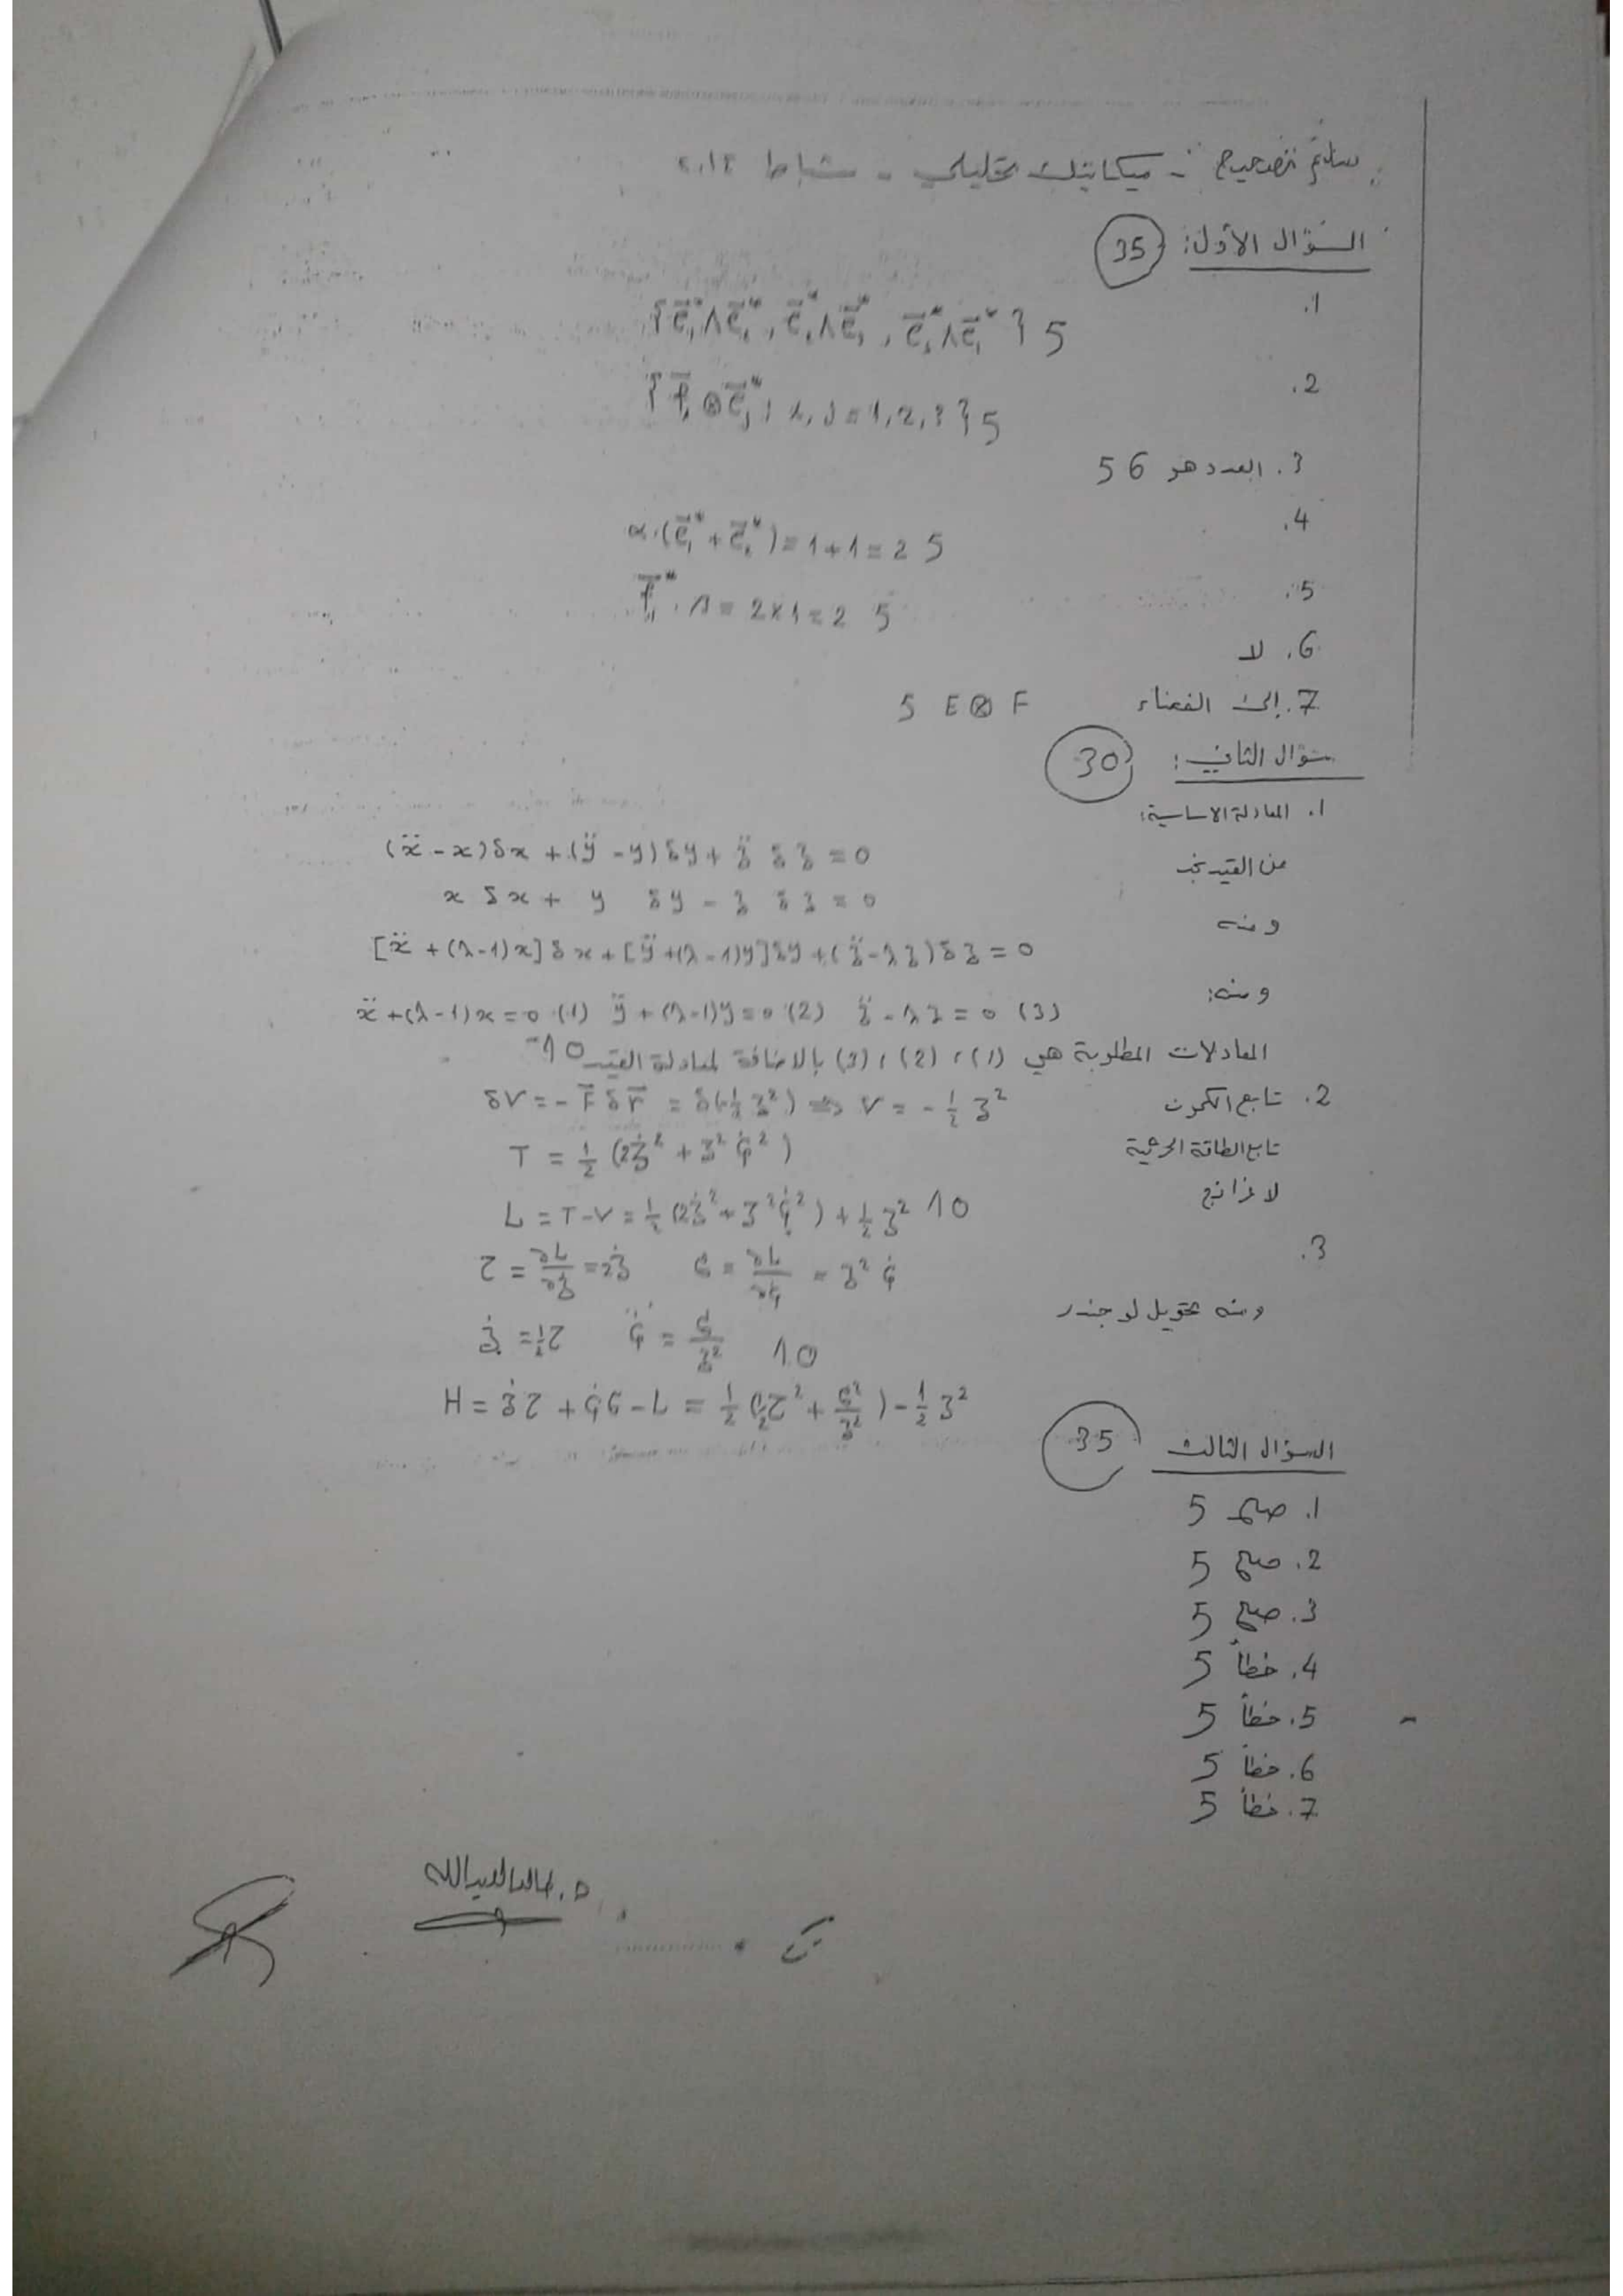 سلم تصحيح - ميكانيك تحليلي - شباط ٢٠١٢
السؤال الأول: 35
1. { e₁*∧e₂*, e₁*∧e₃*, e₂*∧e₃* } 5
2. { f_i ⊗ e_j* ; i, j = 1, 2, 3 } 5
3. العدد هو 6 5
4. α.(e₁* + e₂*) = 1+1 = 2 5
5. = 2×1 = 2 5
6. لا
7. إلى الفضاء E⊗F 5
سؤال الثاني: 30
1. المعادلة الاساسية:
(ẍ - x)δx + (ÿ - y)δy + z̈ δz = 0
من القيد نجد x δx + y δy - z δz = 0
ومنه [ẍ + (λ-1)x]δx + [ÿ + (λ-1)y]δy + (z̈ - λz)δz = 0
ومنه: ẍ + (λ-1)x = 0 (1) ÿ + (λ-1)y = 0 (2) z̈ - λz = 0 (3)
المعادلات المطلوبة هي (1) ، (2) ، (3) بالاضافة لمعادلة القيد 10
2. تابع الكمون δV = - F δr = δ(-½ z²) ⇒ V = - ½ z²
تابع الطاقة الحركية T = ½ (2ż² + z² φ̇²)
لاغرانج L = T - V = ½ (2ż² + z² φ̇²) + ½ z² 10
3. = ∂L/∂ż = 2ż = ∂L/∂φ̇ = z² φ̇
ومنه تحويل لوجندر 10
السؤال الثالث 35
1. صح 5
2. صح 5
3. صح 5
4. خطأ 5
5. خطأ 5
6. خطأ 5
7. خطأ 5